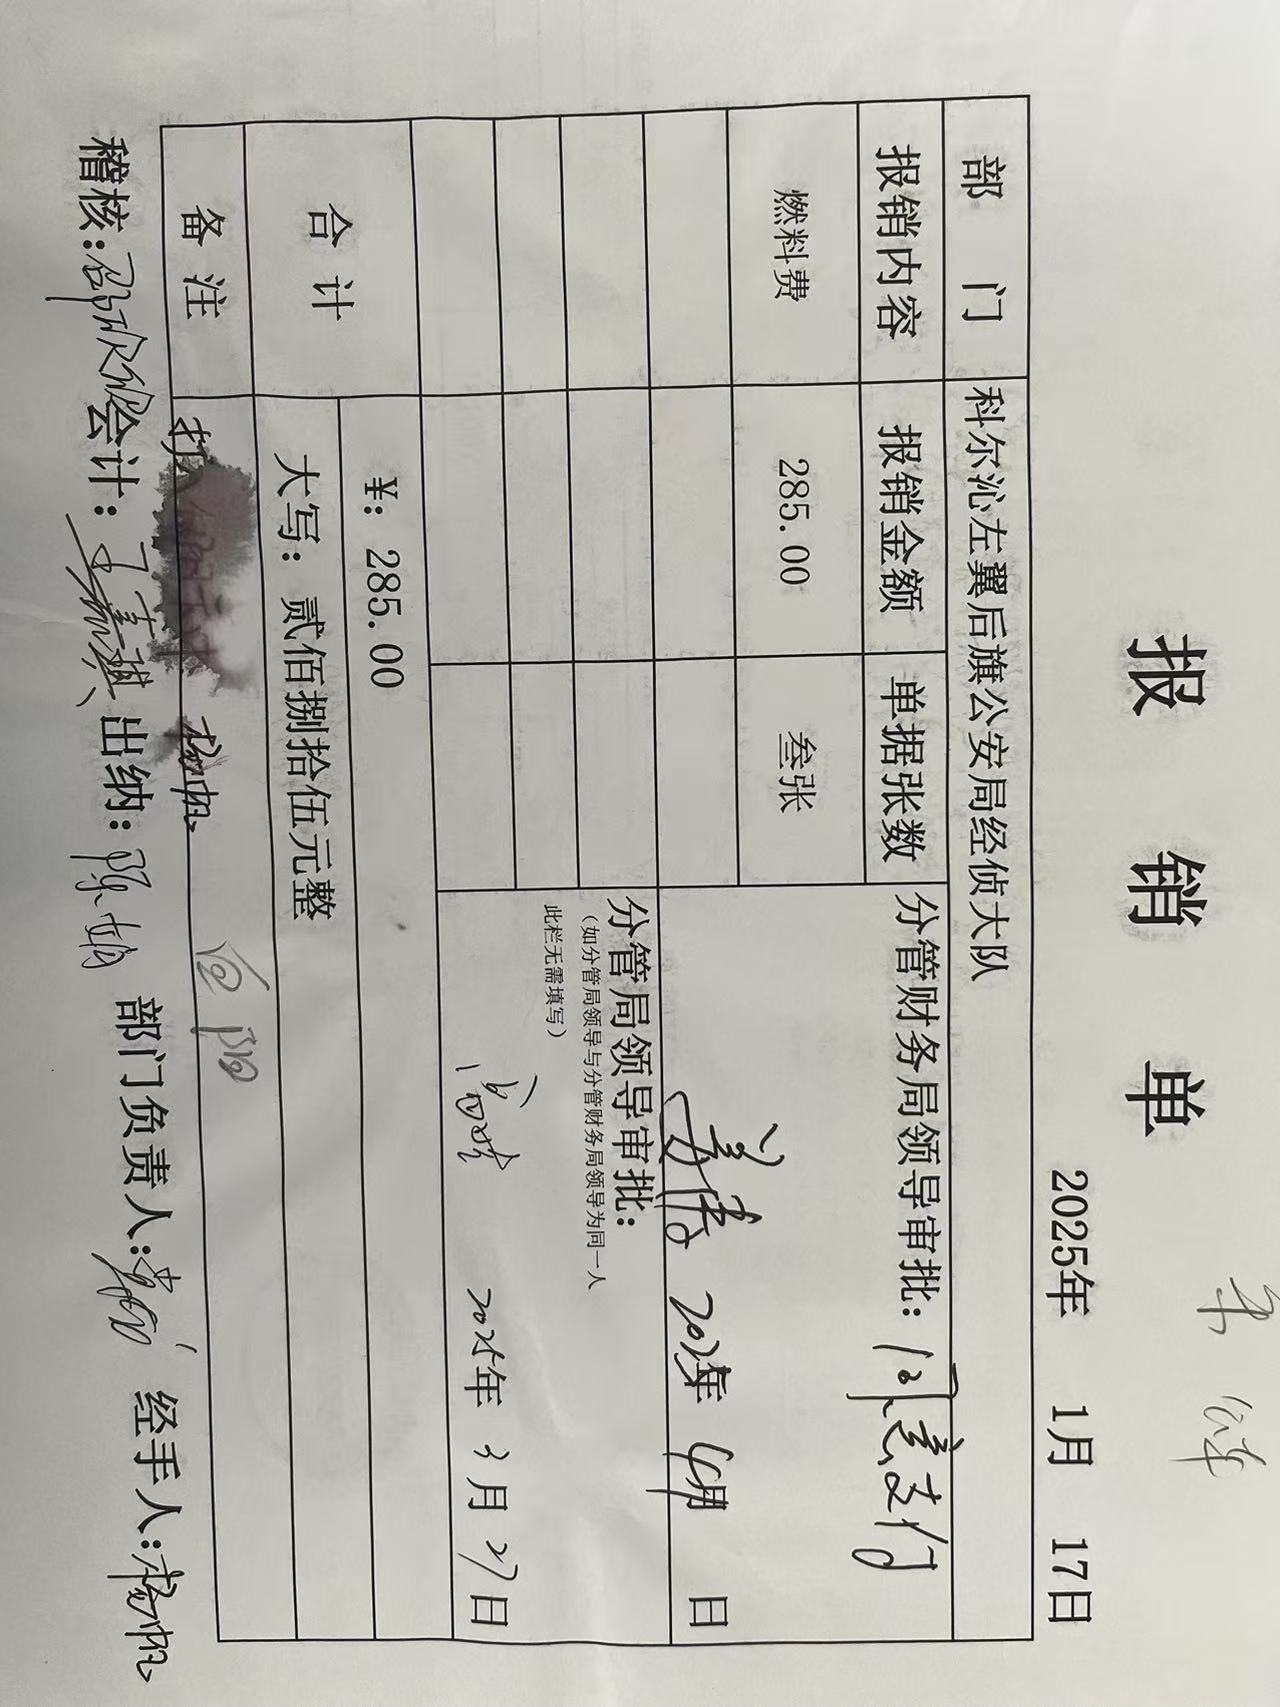 报 销 单
2025年 1月 17日
部 门 科尔沁左翼后旗公安局经侦大队
报销内容 报销金额 单据张数 分管财务局领导审批：同意支付
燃料费 285.00 叁张
2025年 4月 日
分管局领导审批：
（如分管局领导与分管财务局领导为同一人
此栏无需填写）
2025年 3月 27日
合 计 ¥：285.00
大写：贰佰捌拾伍元整
备 注 杨帆
稽核： 会计： 出纳： 部门负责人： 经手人：杨帆